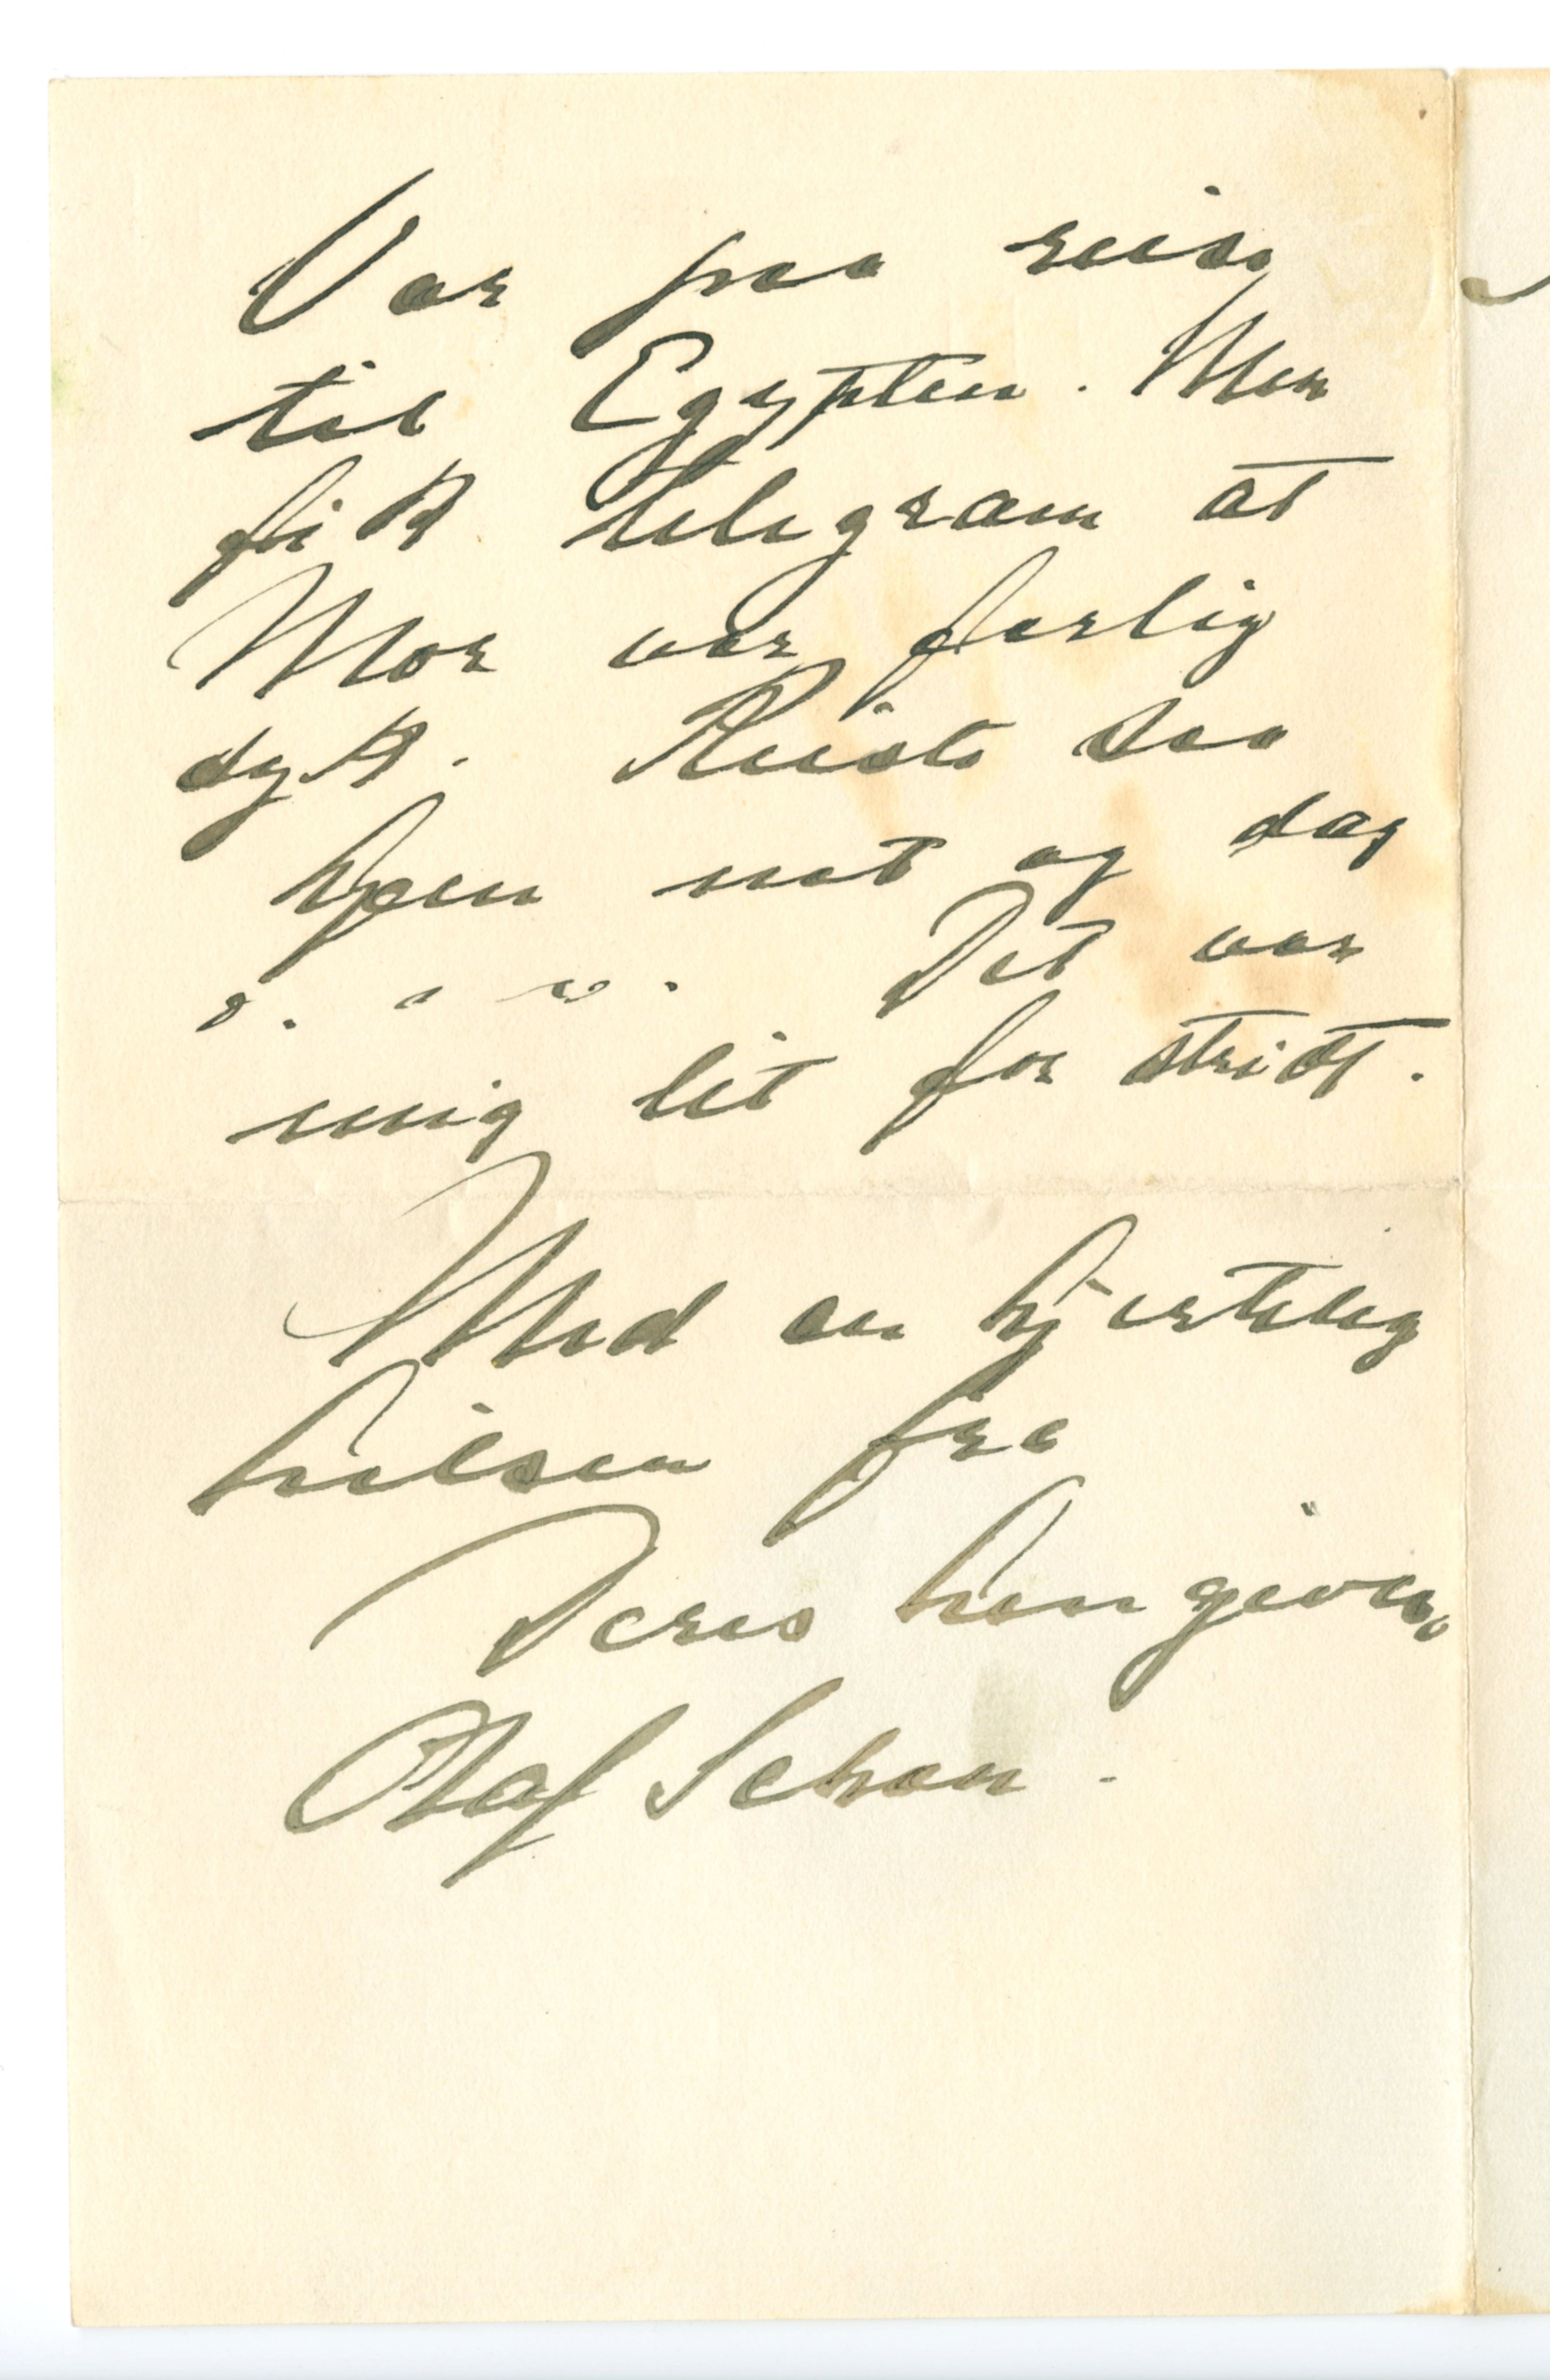 Var paa reise
til Egypten. Men
fik telegram at
Mor var farlig
syk. Reiste saa
hjem nat og dag
o. s. v. Det var
mig lit for stridt.
Med en hjertelig
hilsen fra
Deres hengivne
Olaf Schou.